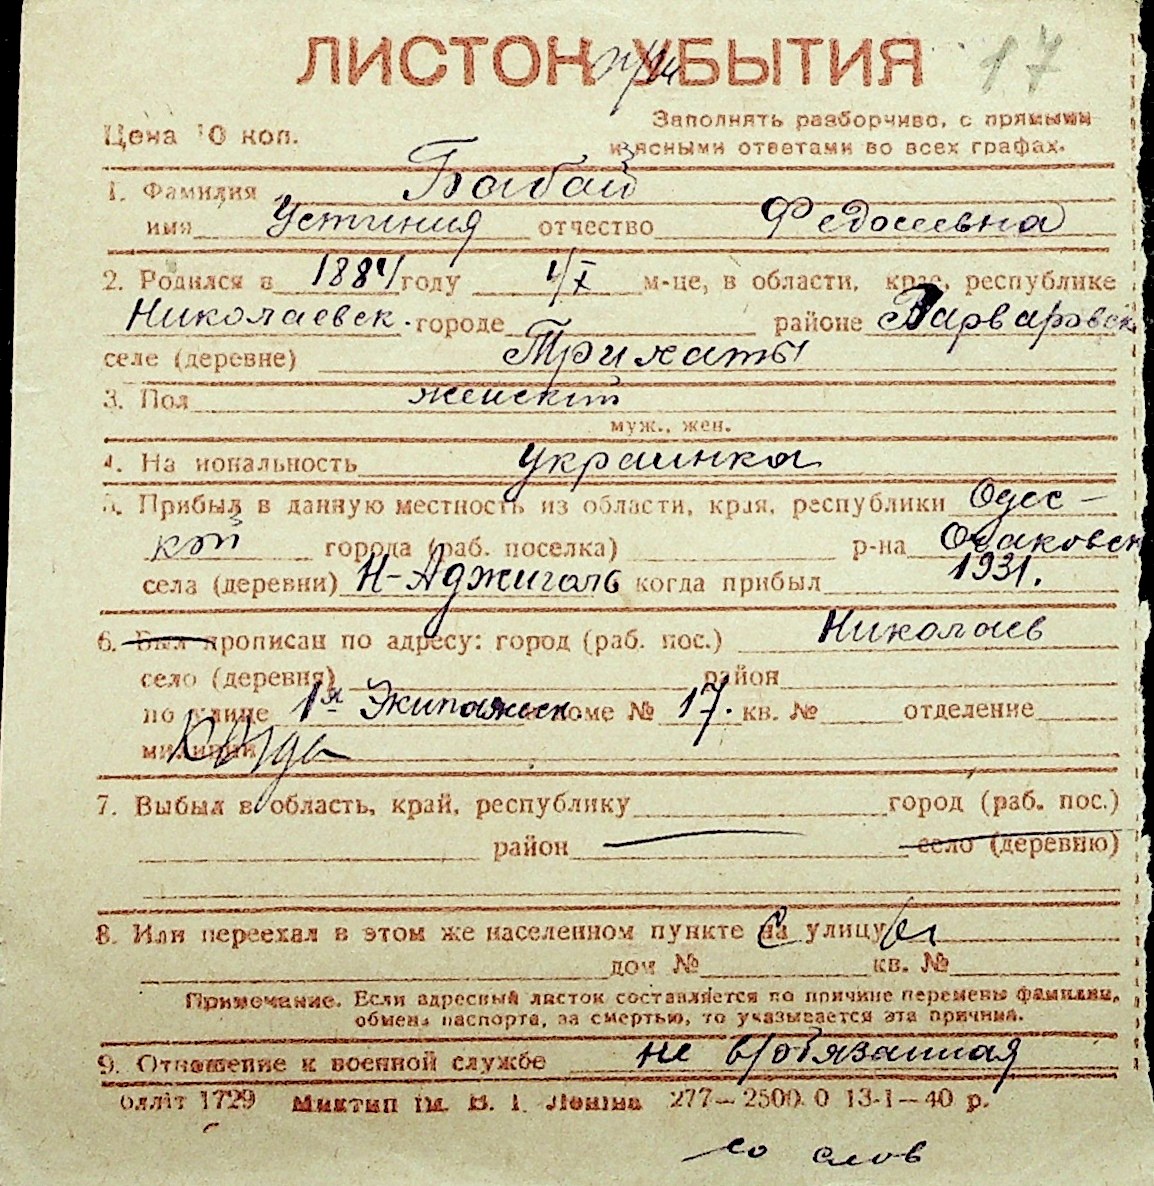 ЛИСТОК УБЫТИЯ 17
Цена 10 коп.
Заполнять разборчиво, с прямыми
и ясными ответами во всех графах.
1. Фамилия Бабай
имя Устиния отчество Федосеевна
2. Родился в 1884 году 4/X м-це, в области, крае, республике
Николаевск. городе районе Варваровск
селе (деревне) Трихаты
3. Пол женский
муж., жен.
4. Национальность украинка
5. Прибыл в данную местность из области, края, республики Одес-
кой города (раб. поселка) р-на Очаковск
села (деревни) Н-Аджигаль когда прибыл 1931.
6. Был прописан по адресу: город (раб. пос.) Николаев
село (деревня) район
по улице 1я Экипажеск доме № 17. кв. № отделение
милиции
7. Выбыл в область, край, республику город (раб. пос.)
район село (деревню)
8. Или переехал в этом же населенном пункте на улицу
дом № кв. №
Примечание. Если адресный листок составляется по причине перемены фамилии,
обмена паспорта, за смертью, то указывается эта причина.
9. Отношение к военной службе не в/обязанная
олліт 1729 Миктип ім. В. І. Леніна 277—2500.0 13-1—40 р.
со слов